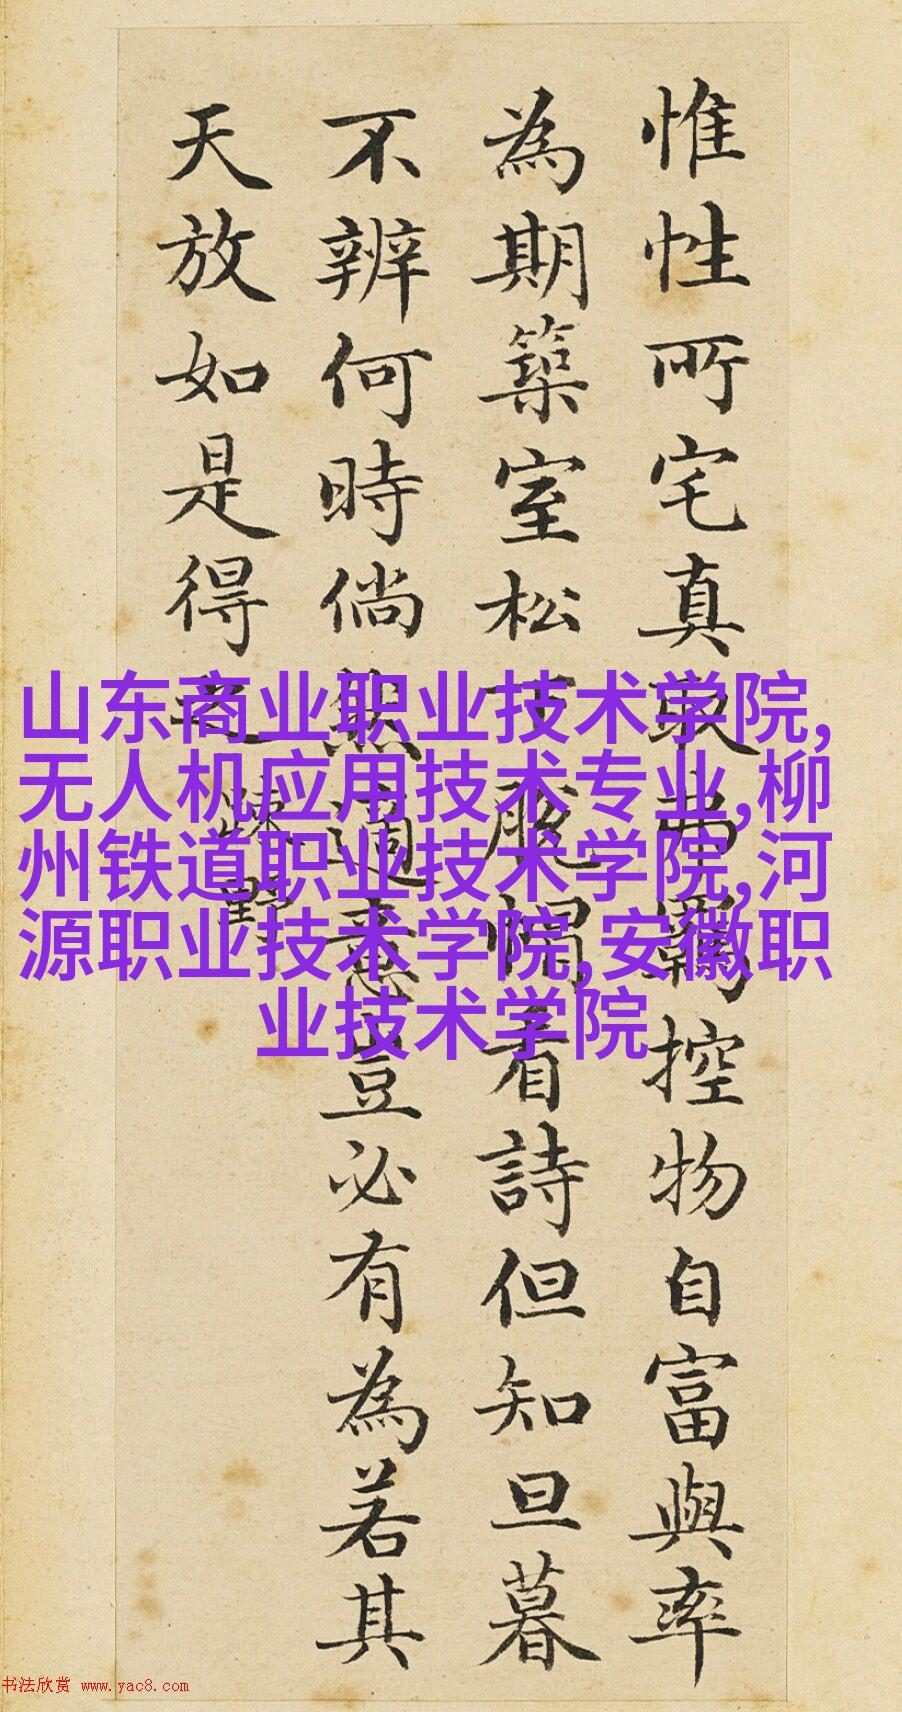 惟性所宅真取弗羈控物自富與率
為期築室松下脫帽看詩但知旦暮
不辨何時倘然適意豈必有為若其
天放如是得之
疎野
山东商业职业技术学院,
无人机应用技术专业,柳
州铁道职业技术学院,河
源职业技术学院,安徽职
业技术学院
书法欣赏 www.yac8.com